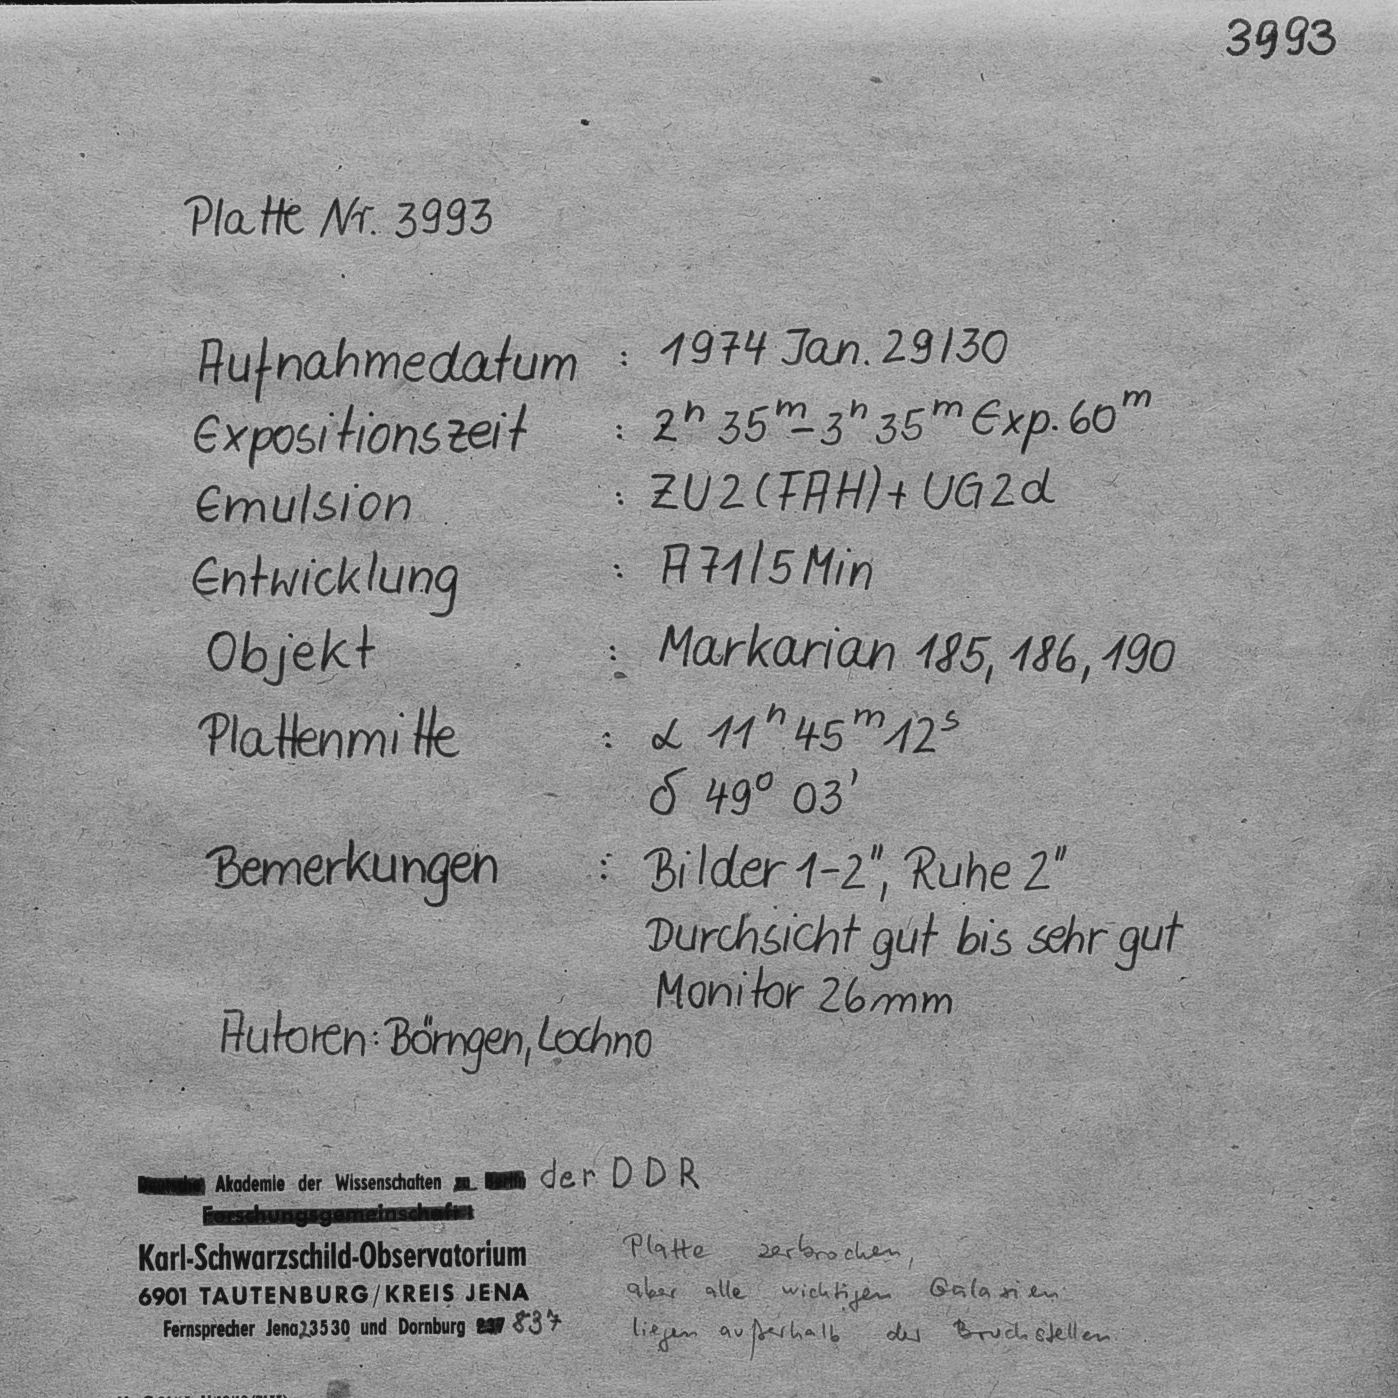 3993
Platte Nr. 3993
Aufnahmedatum : 1974 Jan. 29/30
Expositionszeit : 2ʰ 35ᵐ – 3ʰ 35ᵐ Exp. 60ᵐ
Emulsion : ZU2 (FAH) + UG2d
Entwicklung : A71/5 Min
Objekt : Markarian 185, 186, 190
Plattenmitte : α 11ʰ 45ᵐ 12ˢ
δ 49° 03'
Bemerkungen : Bilder 1-2", Ruhe 2"
Durchsicht gut bis sehr gut
Monitor 26mm
Autoren: Börngen, Lochno
Deutsche Akademie der Wissenschaften zu Berlin der DDR
Forschungsgemeinschaft
Karl-Schwarzschild-Observatorium
6901 TAUTENBURG/KREIS JENA
Fernsprecher Jena 23530 und Dornburg 837
Platte zerbrochen,
aber alle wichtigen Galaxien
liegen außerhalb der Bruchstellen